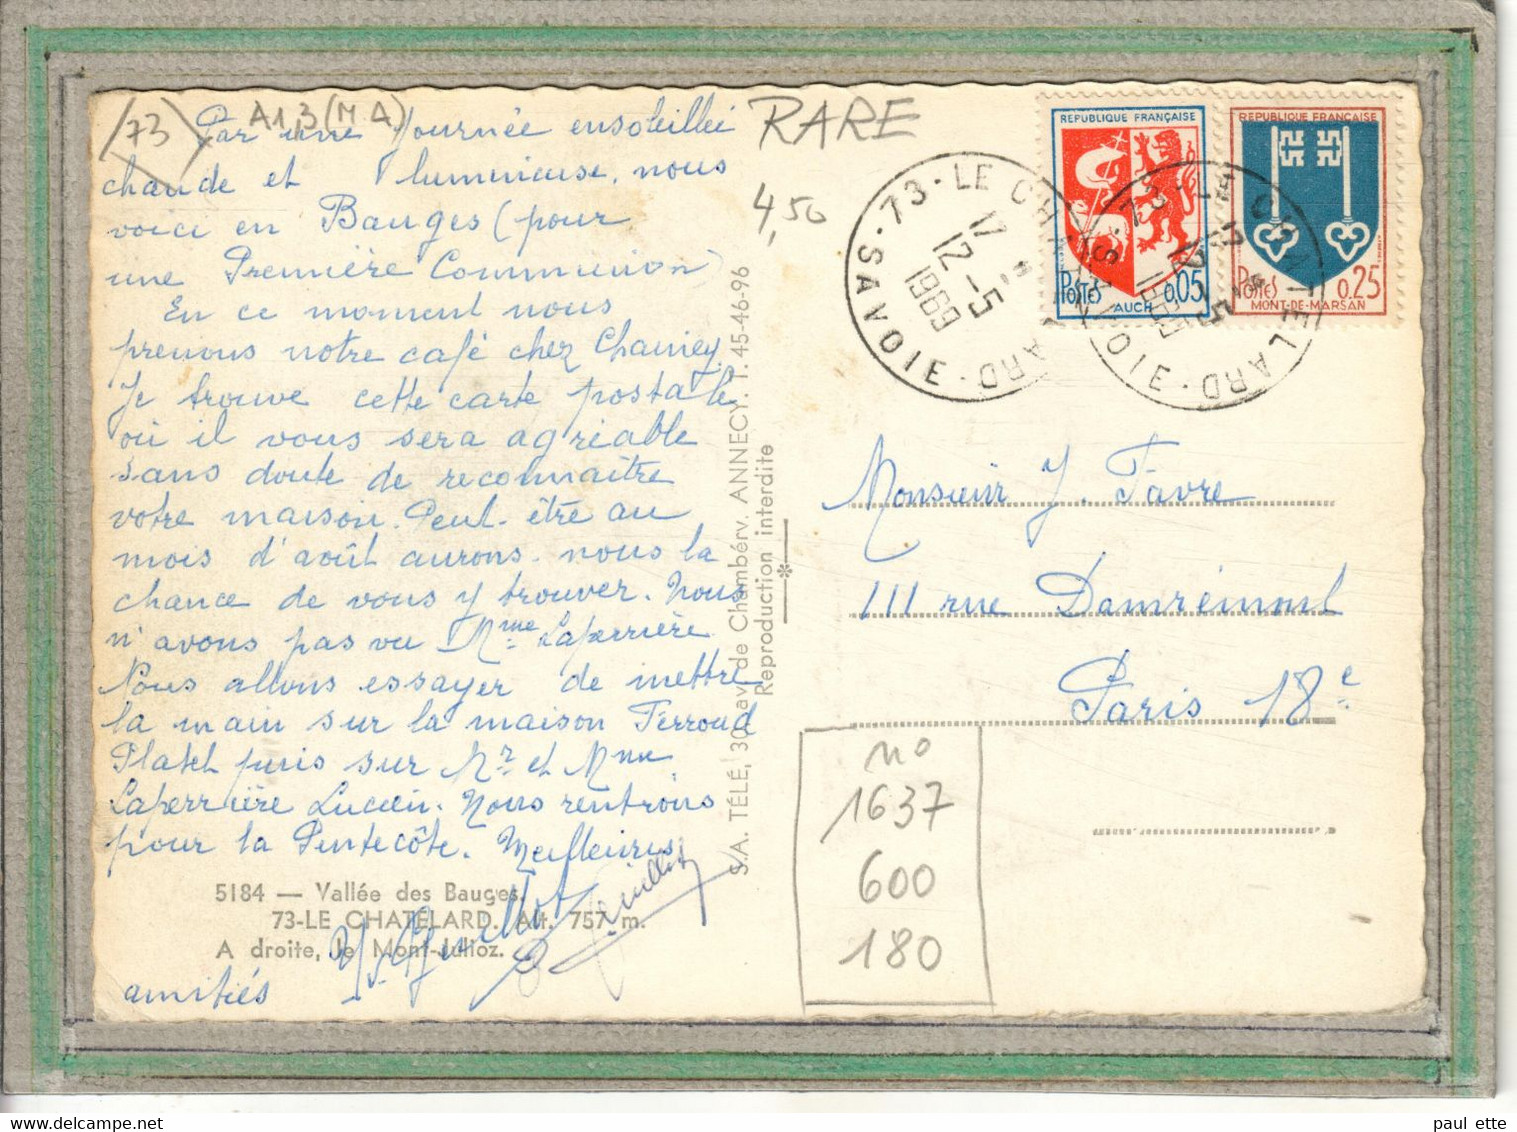 (73)
A13 (MA)
RARE
4,50
Par une journée ensoleillée
chaude et lumineuse, nous
voici en Bauges (pour
une Première Communion)
En ce moment nous
prenons notre café chez Chainey.
Je trouve cette carte postale
où il vous sera agréable
sans doute de reconnaître
votre maison. Peut-être au
mois d'août aurons-nous la
chance de vous y trouver. Nous
n'avons pas vu Mme Laperrière
Nous allons essayer de mettre
la main sur la maison Ferroud
Platel puis sur Mr et Mme
Laperrière Lucien. Nous rentrons
pour la Pentecôte. Meilleures
amitiés
5184 — Vallée des Bauges.
73-LE CHATELARD. Alt. 757 m.
A droite, le Mont-Julioz.
S.A. TÉLÉ, 30 av. de Chambéry. ANNECY. T. 45-46-96
Reproduction interdite
REPUBLIQUE FRANÇAISE
POSTES 0,05
AUCH
REPUBLIQUE FRANÇAISE
POSTES 0,25
MONT-DE-MARSAN
73-LE CHATELARD
SAVOIE
17 H
12-5
1969
73-LE CHATELARD
SAVOIE
17 H
12-5
1969
Monsieur J. Favre
111 rue Damrémont
Paris 18e
no
1637
600
180
paul ette